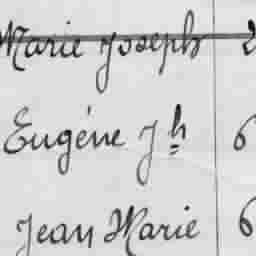 Marie Joseph 2
Eugéne Jh 6
Jean Marie 6